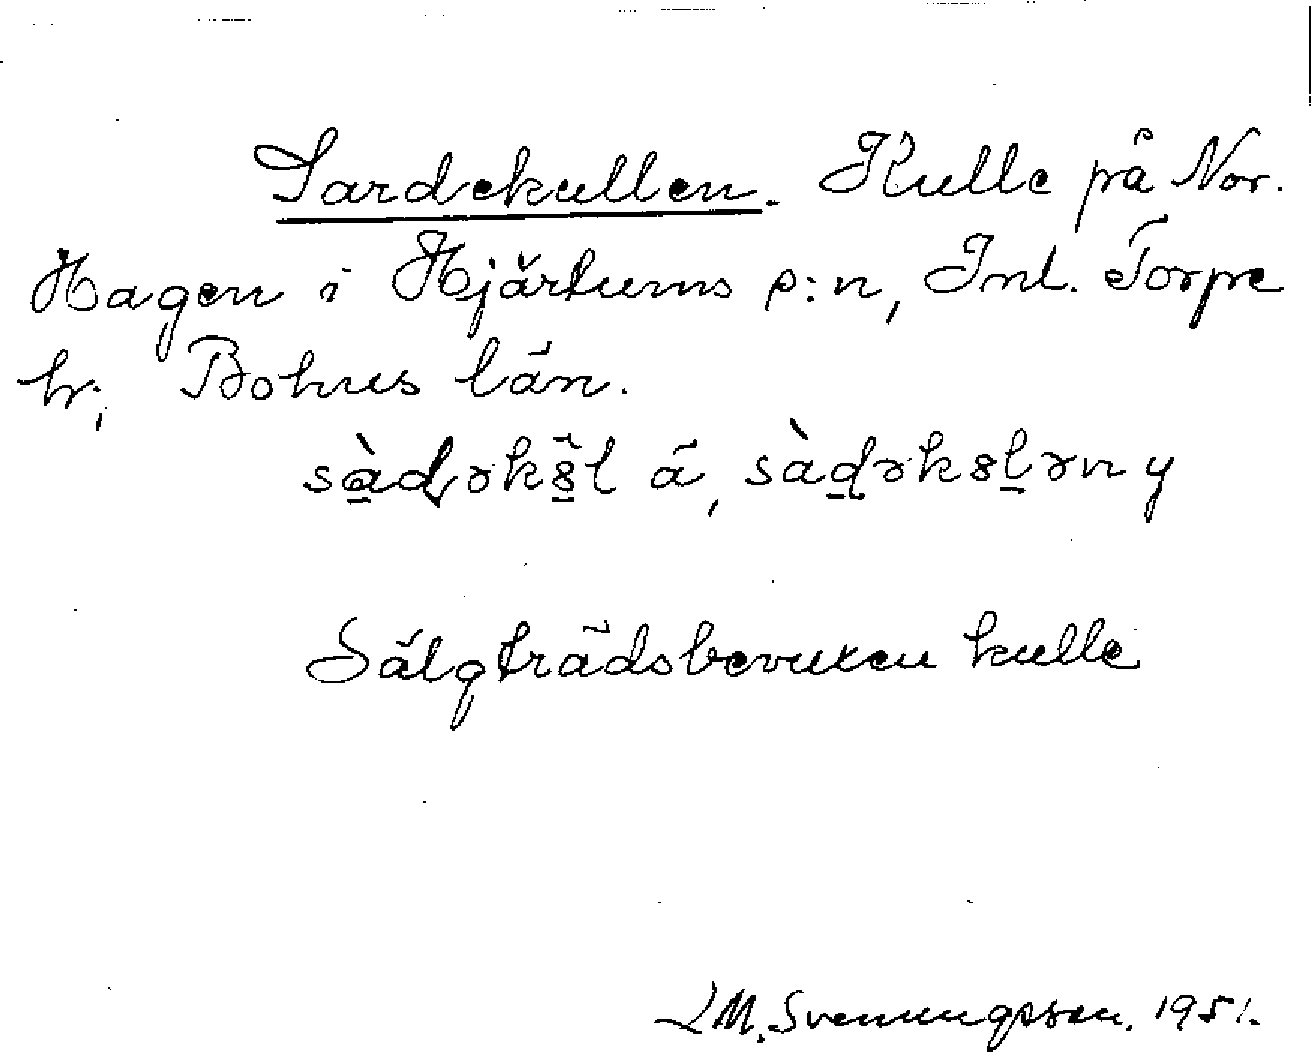 Sardekullen. Kulle på Nor.
Hagen i Hjärtums s:n, Inl. Torpe
hr; Bohus län.
sàdəkn̥l ä, sàdəkslən y
Sälgträdsbevuxen kulle
LM. Svenungsson. 1951.